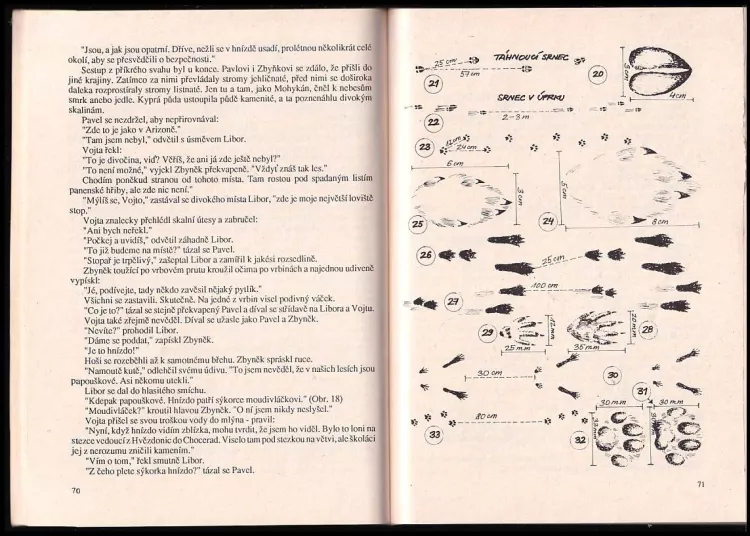 "Jsou, a jak jsou opatrní. Dříve, nežli se v hnízdě usadí, prolétnou několikrát celé
okolí, aby se přesvědčili o bezpečnosti."
Sestup z příkrého svahu byl u konce. Pavlovi i Zbyňkovi se zdálo, že přišli do
jiné krajiny. Zatímco za nimi převládaly stromy jehličnaté, před nimi se doširoka
daleka rozprostíraly stromy listnaté. Jen tu a tam, jako Mohykán, čněl k nebesům
smrk anebo jedle. Kyprá půda ustoupila půdě kamenité, a ta poznenáhlu divokým
skalinám.
Pavel se nezdržel, aby nepřirovnával:
"Zde to je jako v Arizoně."
"Tam jsem nebyl," odvětil s úsměvem Libor.
Vojta řekl:
"To je divočina, viď? Věříš, že ani já zde ještě nebyl?"
"To není možné," vyjekl Zbyněk překvapeně. "Vždyť znáš tak les."
Chodím poněkud stranou od tohoto místa. Tam rostou pod spadaným listím
panenské hřiby, ale zde nic není."
"Mýlíš se, Vojto," zastával se divokého místa Libor, "zde je moje největší loviště
stop."
Vojta znalecky přehlédl skalní útesy a zabručel:
"Ani bych neřekl."
"Počkej a uvidíš," odvětil záhadně Libor.
"To již budeme na místě?" tázal se Pavel.
"Stopař je trpělivý," zašeptal Libor a zamířil k jakési rozsedlině.
Zbyněk toužící po vrbovém prutu kroužil očima po vrbinách a najednou udiveně
vypískl:
"Jé, podívejte, tady někdo zavěsil nějaký pytlík."
Všichni se zastavili. Skutečně. Na jedné z vrbin visel podivný váček.
"Co je to?" tázal se stejně překvapený Pavel a díval se střídavě na Libora a Vojtu.
Vojta také zřejmě nevěděl. Díval se užasle jako Pavel a Zbyněk.
"Nevíte?" prohodil Libor.
"Dáme se poddat," zapískl Zbyněk.
"Je to hnízdo!"
Hoši se rozeběhli až k samotnému břehu. Zbyněk spráskl ruce.
"Namoutě kutě," odlehčil svému údivu. "To jsem nevěděl, že v našich lesích jsou
papouškové. Asi někomu utekli."
Libor se dal do hlasitého smíchu.
"Kdepak papouškové. Hnízdo patří sýkorce moudivláčkovi." (Obr. 18)
"Moudivláček?" kroutil hlavou Zbyněk. "O ní jsem nikdy neslyšel."
Vojta přišel se svou troškou vody do mlýna - pravil:
"Nyní, když hnízdo vidím zblízka, mohu tvrdit, že jsem ho viděl. Bylo to loni na
stezce vedoucí z Hvězdonic do Chocerad. Viselo tam pod stezkou na větvi, ale školáci
jej z nerozumu zničili kamením."
"Vím o tom," řekl smutně Libor.
"Z čeho plete sýkorka hnízdo?" tázal se Pavel.
70
TÁHNOUCÍ SRNEC
25 cm
57 cm
21
20
5 cm
4 cm
SRNEC V ÚPRKU
22
2-3 m
23
12 cm
24 cm
6 cm
3 cm
25
5 cm
24
8 cm
26
25 cm
27
100 cm
29
12 mm
25 mm
20 mm
28
35 mm
30 cm
30
31
30 mm
30 mm
33
80 cm
32
71